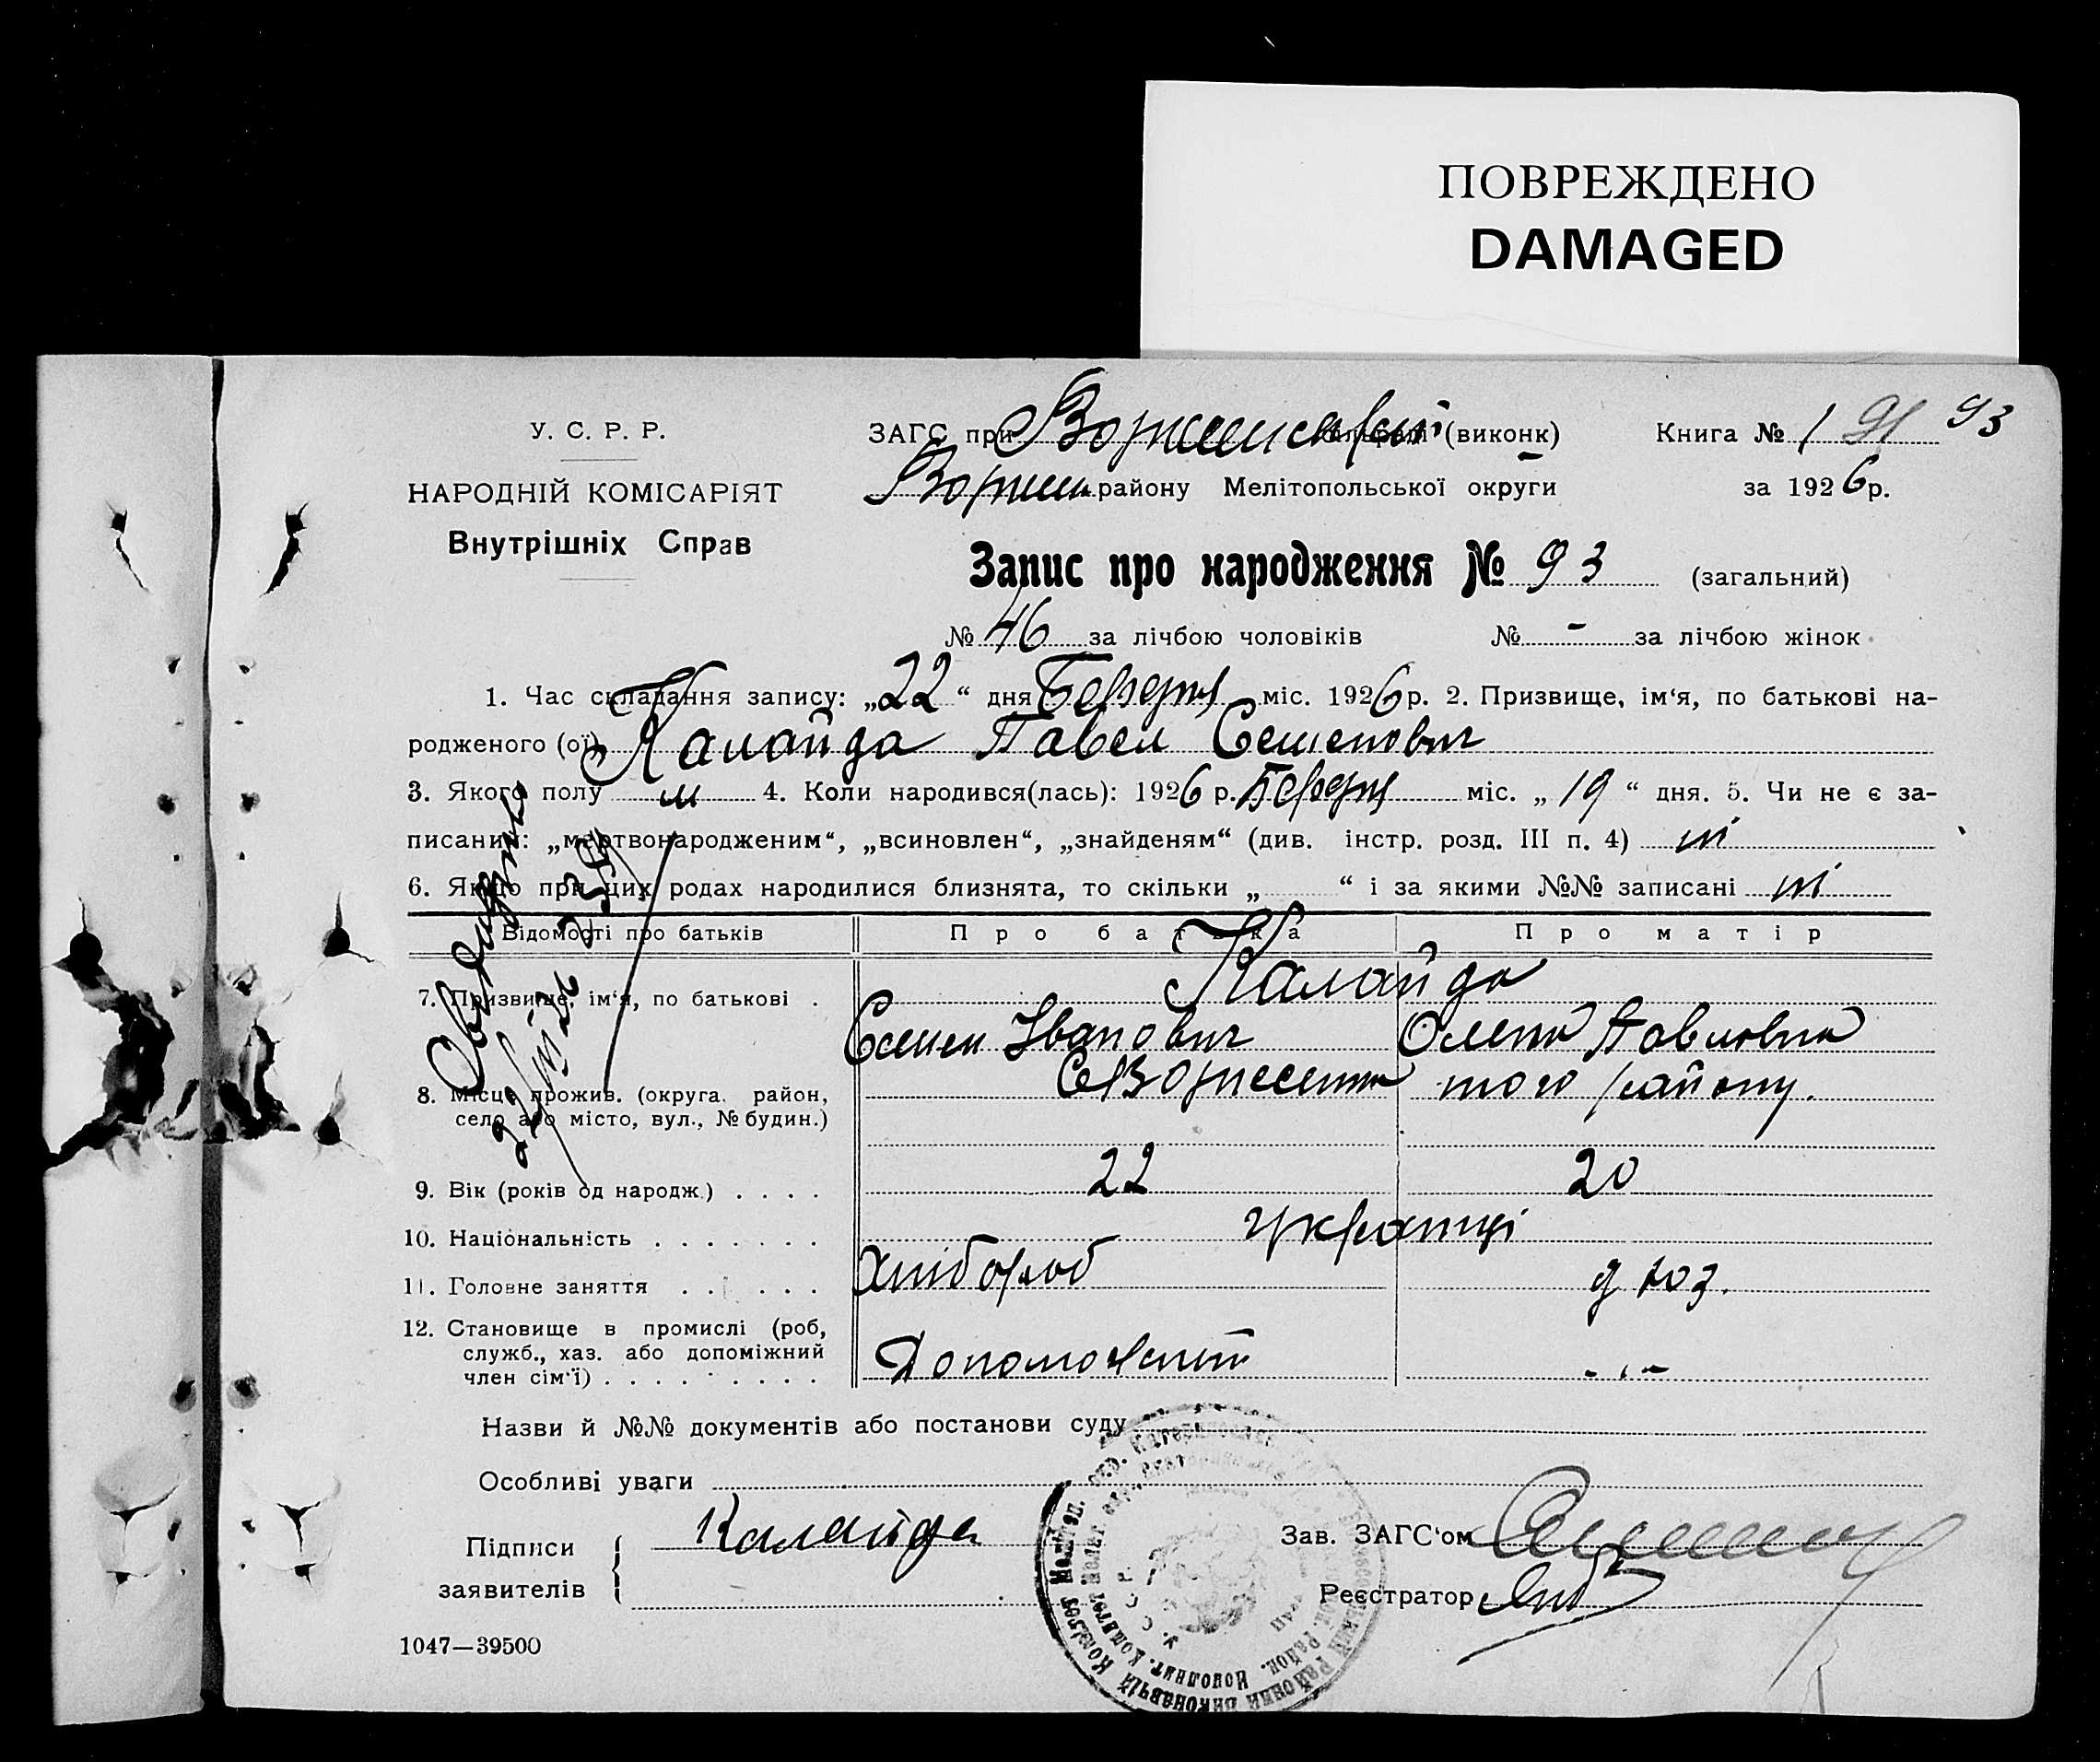 ПОВРЕЖДЕНО
DAMAGED
У. С. Р. Р.
НАРОДНІЙ КОМІСАРІЯТ
Внутрішніх Справ
ЗАГС при (виконк)
району Мелітопольської округи
Книга № 1 91 93
за 1926 р.
Запис про народження № 93 (загальний)
№ 46 за лічбою чоловіків № - за лічбою жінок
1. Час складання запису: „22“ дня Березня міс. 1926 р. 2. Призвище, ім‘я, по батькові на-
родженого (ої) Калайда Павел Семенович
3. Якого полу м 4. Коли народився(лась): 1926 р. Березня міс. „19“ дня. 5. Чи не є за-
писаним: „мертвонародженим“, „всиновлен“, „знайденям“ (див. інстр. розд. III п. 4) ні
6. Якщо при цих родах народилися близнята, то скільки „ “ і за якими №№ записані ні
Відомості про батьків Про батька Про матір
7. Призвище, ім‘я, по батькові . Калайда
Семен Іванович Олена Павловна
8. Місце прожив. (округа. район, того району.
село або місто, вул., № будин.)
9. Вік (років од народж.) . . . . 22 20
10. Національність . . . . . . . українці
11. Головне заняття . . . . . . хлібороб
12. Становище в промислі (роб,
служб., хаз. або допоміжний
член сім‘ї) . . . . . . . . . -,,-
Назви й №№ документів або постанови суду
Особливі уваги
Підписи
заявителів
Калайда
Зав. ЗАГС‘ом
Реєстратор
1047—39500